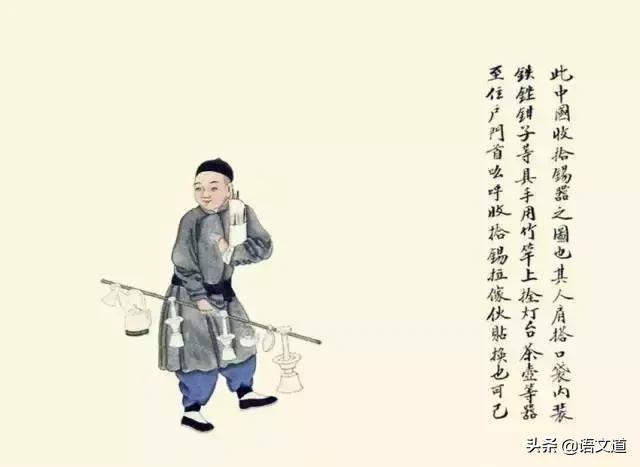 此中國收拾錫器之圖也其人肩搭口袋內裝
鉄銼鉗子等具手用竹竿上拴灯台茶壺等器
至住户門首吆呼收拾錫拉傢伙貼换也可已
头条@语文道